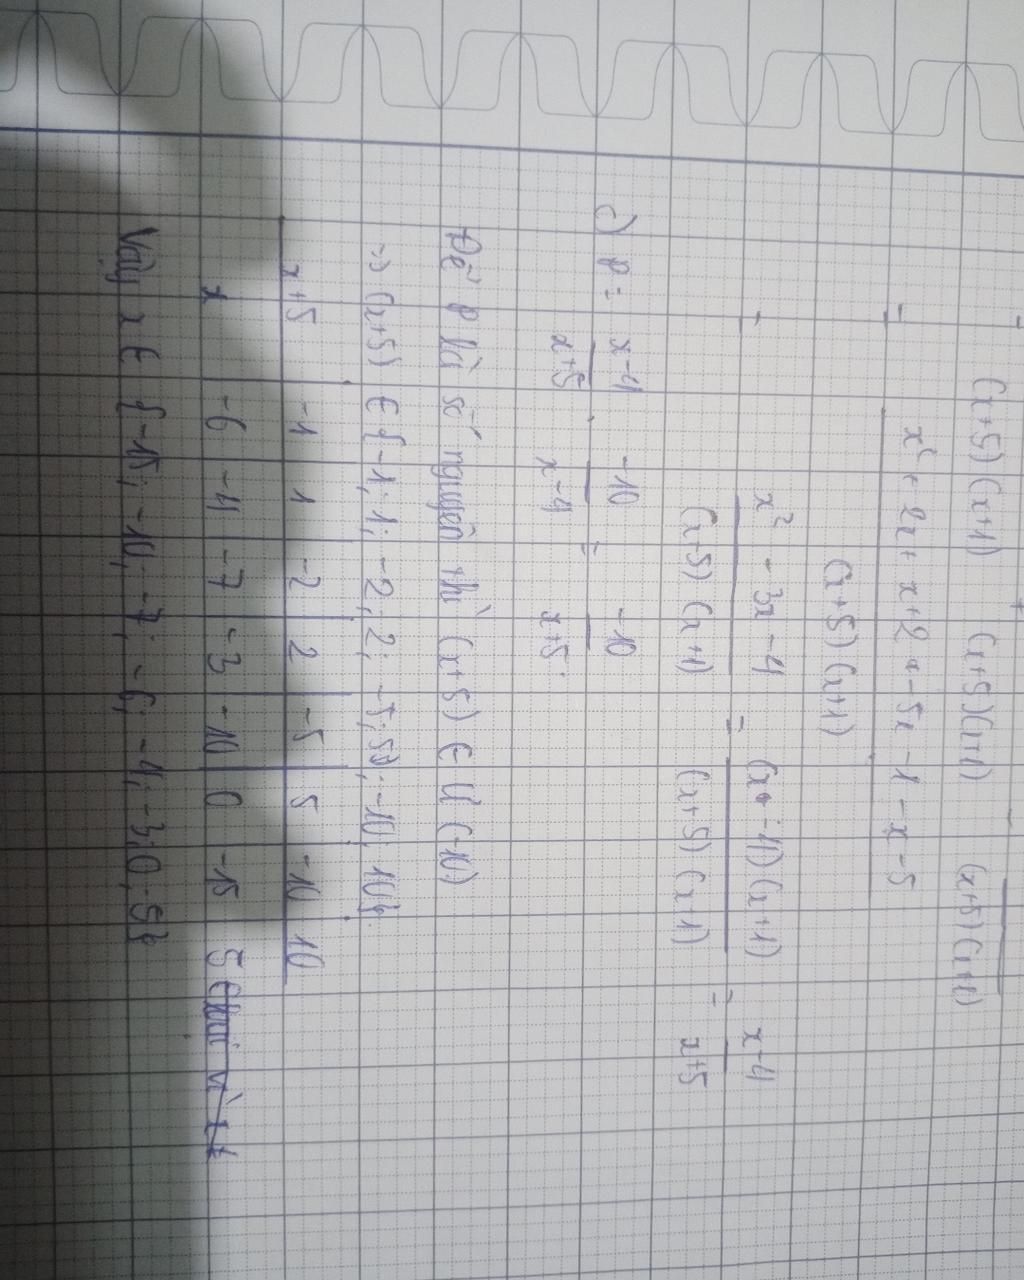 = (x+5)(x+1) + (x+5)(x+1) - (x+5)(x+1)
= x² + 2x + x + 2 + -5x - 1 - x - 5
(x+5)(x+1)
= x² - 3x - 4 = (x - 4)(x+1) = x-4
(x+5)(x+1) (x+5)(x+1) x+5
c) P = x-4 . -10 = -10
x+5 x-4 x+5
Để P là số nguyên thì (x+5) ∈ Ư(-10)
=> (x+5) ∈ {-1; 1; -2; 2; -5; 5; -10; 10}.
x+5 -1 1 -2 2 -5 5 -10 10
x -6 -4 -7 -3 -10 0 -15 5
Vậy x ∈ {-15; -10; -7; -6; -4; -3; 0; 5}